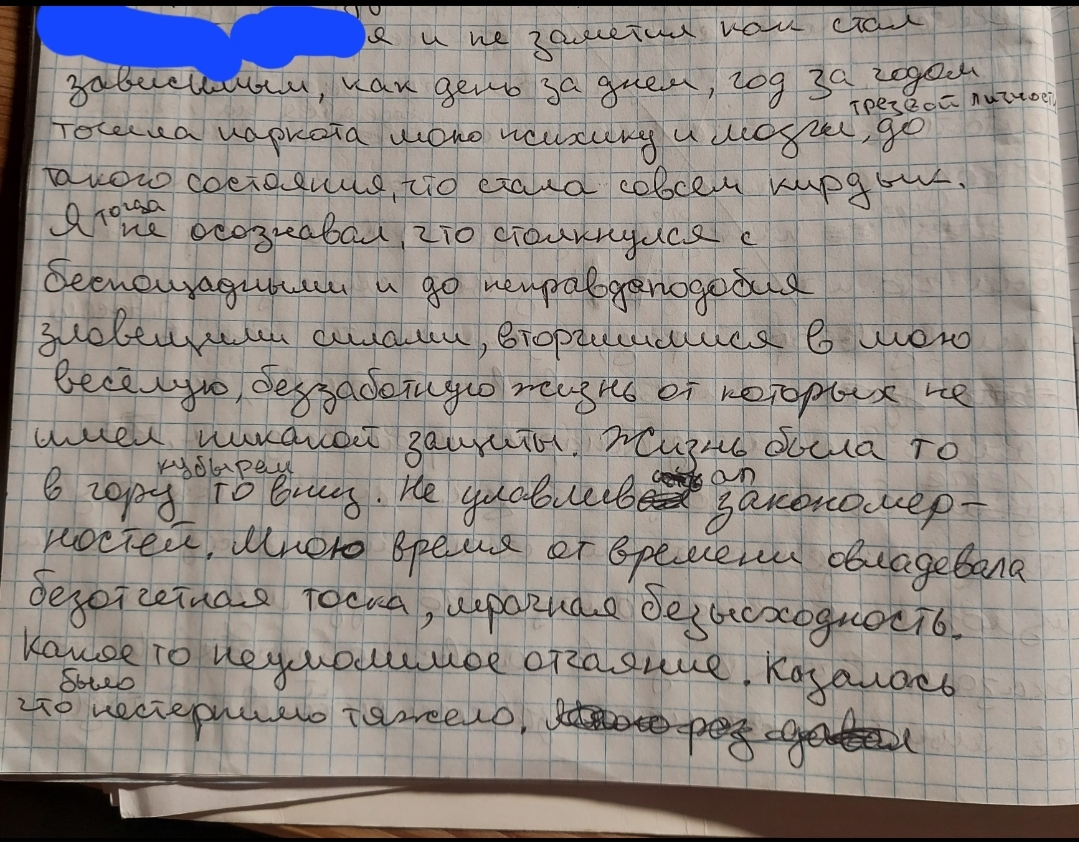 я и не заметил как стал
зависимым, как день за днем, год за годом
трезвой личности
точила наркота мою психику и мозги, до
такого состояния, что стала совсем кирдык.
тогда
Я не осознавал, что столкнулся с
беспощадными и до неправдаподобия
зловещими силами, вторгшимися в мою
весёлую, беззаботную жизнь от которых не
имел никакой защиты. Жизнь была то
кубырем
в гору то вниз. Не улавливал закономер-
ностей. Мною время от времени овладевала
безотчетная тоска, мрачная безысходность.
Какое то неумолимое отчаяние. Казалось
было
что нестерпимо тяжело.